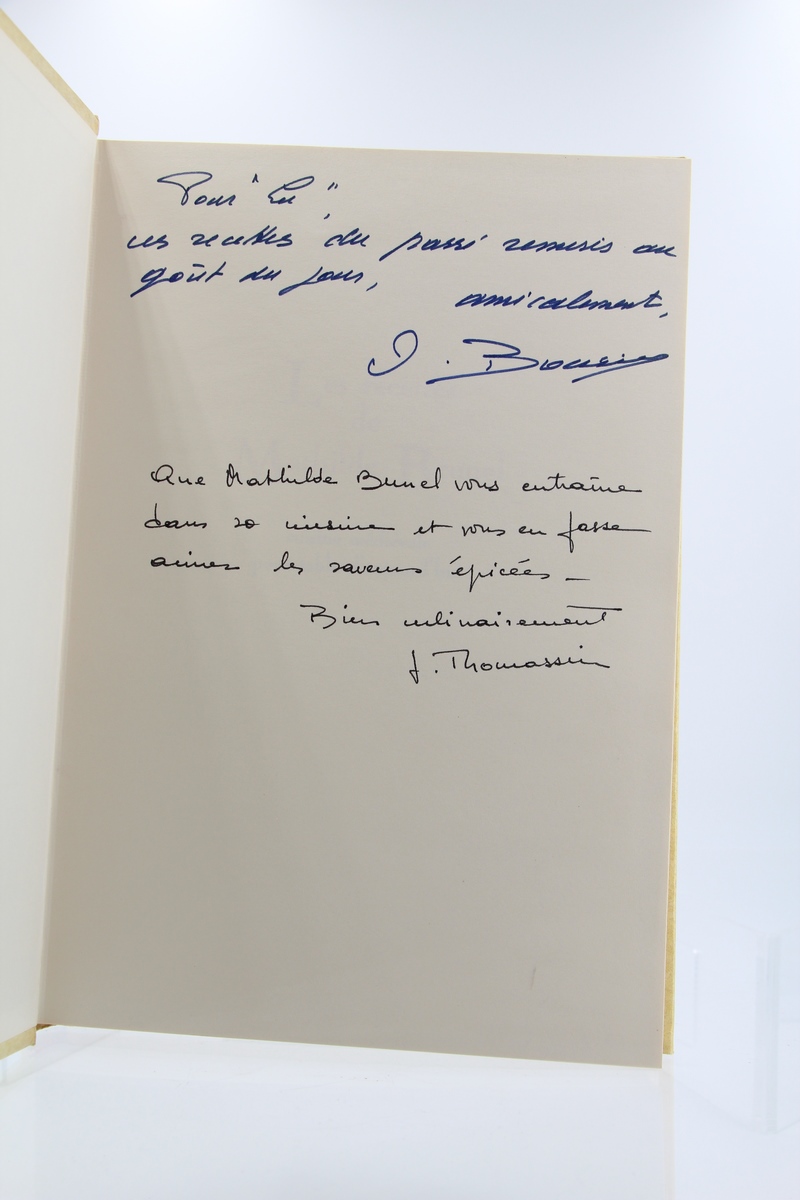 Pour "Lu",
ces recettes du passé remises au
goût du jour,
amicalement,
Que Mathilde Brunel vous entraîne
dans sa cuisine et vous en fasse
aimer les saveurs épicées _
Bien culinairement
J. Thomassin